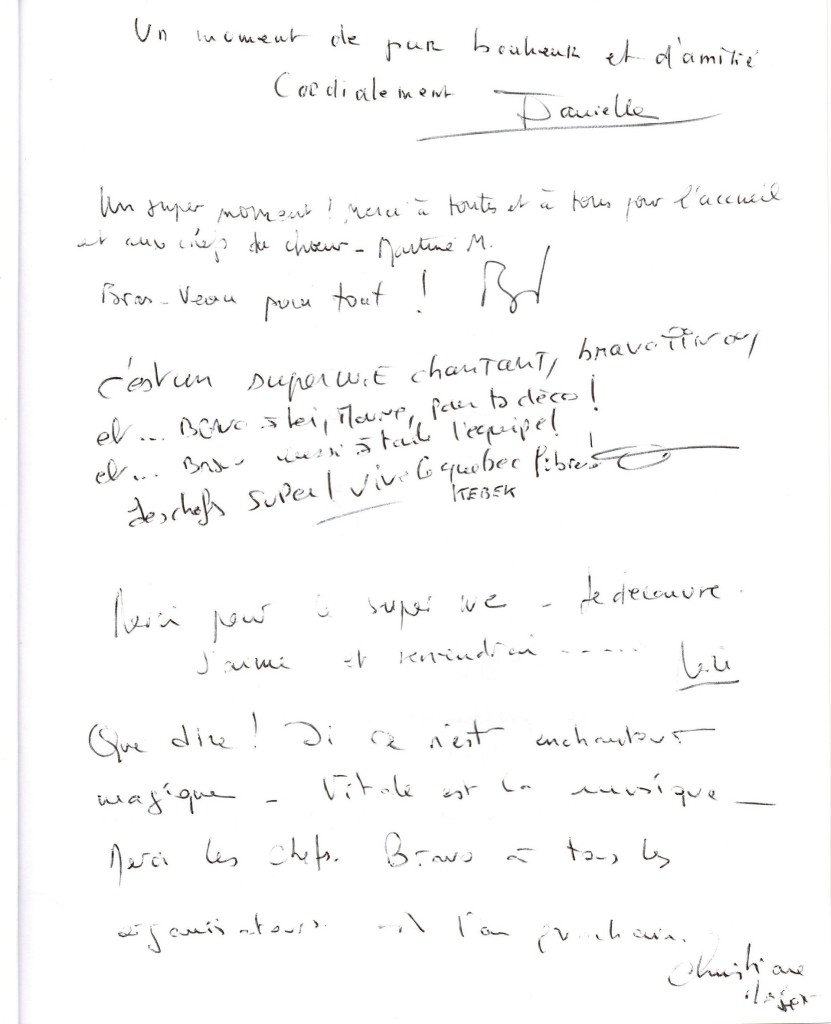 Un moment de pur bonheur et d'amitié
Cordialement Danielle
Un super moment ! Merci à toutes et à tous pour l'accueil
et aux chefs de chœur - Martine M.
pour tout !
C'est un super W.E chantant, bravo
et ... Bravo à toi, pour ta déco !
et ... Bravo aussi à toute l'équipe !
les chefs super ! Vive le québec libre !
KEBEK
Merci pour le super WE - Je découvre.
J'aime et reviendrai ......
Que dire ! Si ce n'est enchanteur
magique - Vitale est la musique -
Merci les chefs. Bravo à tous les
organisateurs l'an prochain.
Christiane